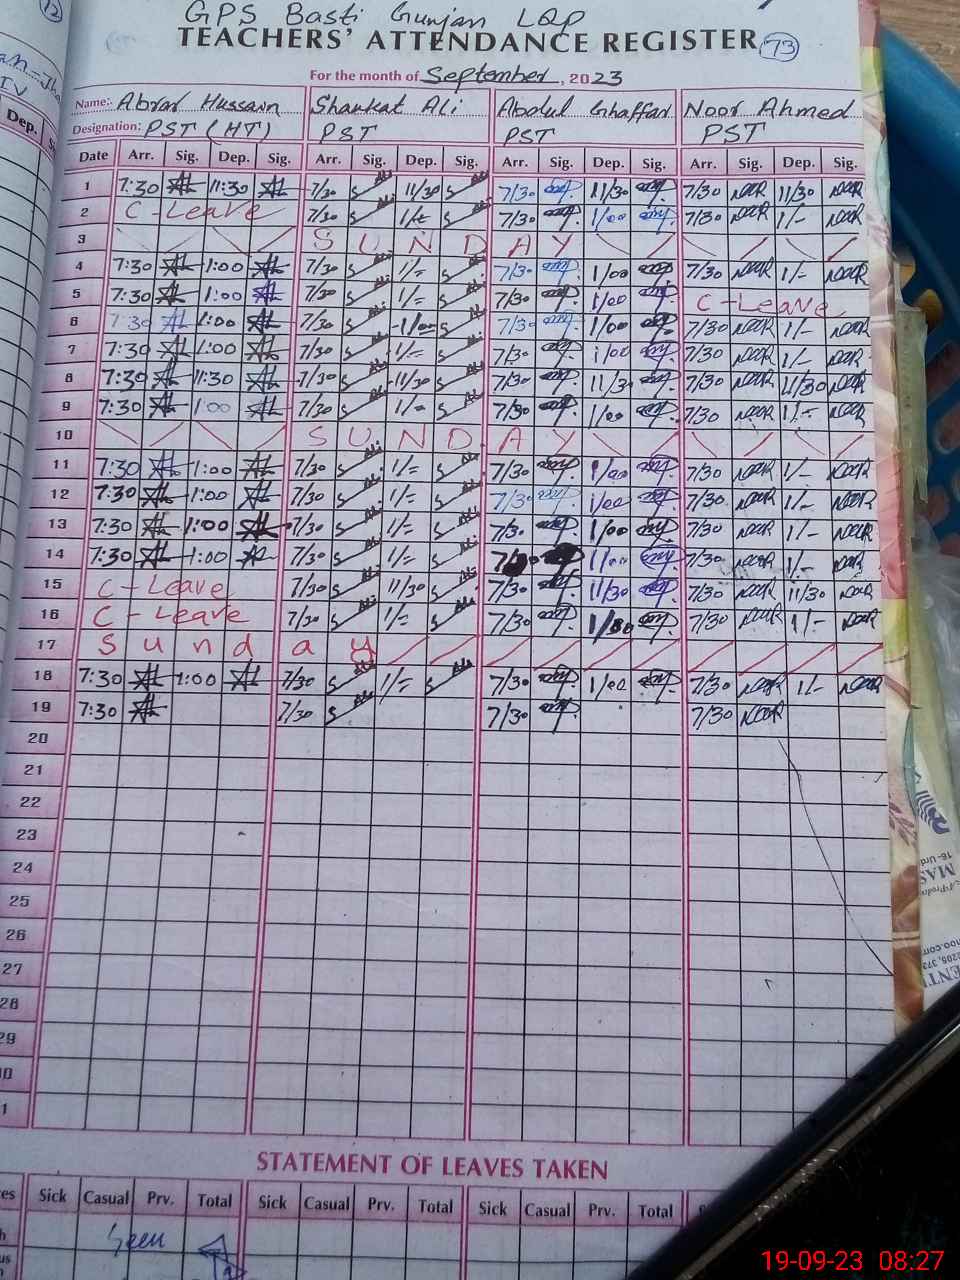 GPS Basti Gunjan LQP
TEACHERS' ATTENDANCE REGISTER 73
For the month of September, 2023
Name:- Abrar Hussain Shaukat Ali Abdul Ghaffar Noor Ahmed
Designation: PST (HT) PST PST PST
Date Arr. Sig. Dep. Sig. Arr. Sig. Dep. Sig. Arr. Sig. Dep. Sig. Arr. Sig. Dep. Sig.
1 7:30 11:30 7/30 11/30 7/30 11/30 7/30 NOOR 11/30 NOOR
2 C-Leave 7/30 7/30 1/00 7/30 NOOR 1/- NOOR
3 S U N D A Y
4 7:30 1:00 7/30 1/= 7/30 1/00 7/30 NOOR 1/- NOOR
5 7:30 1:00 7/30 1/= 7/30 1/00 C-Leave
6 7:30 1:00 7/30 1/00 7/30 1/00 7/30 NOOR 1/- NOOR
7 7:30 1:00 7/30 1/= 7/30 1/00 7/30 NOOR 1/- NOOR
8 7:30 11:30 7/30 11/30 7/30 11/30 7/30 NOOR 11/30 NOOR
9 7:30 1:00 7/30 1/= 7/30 1/00 7/30 NOOR 1/- NOOR
10 S U N D A Y
11 7:30 1:00 7/30 1/= 7/30 1/00 7/30 NOOR 1/- NOOR
12 7:30 1:00 7/30 1/= 7/30 1/00 7/30 NOOR 1/- NOOR
13 7:30 1:00 7/30 1/= 7/30 1/00 7/30 NOOR 1/- NOOR
14 7:30 1:00 7/30 1/= 7/30 1/00 7/30 NOOR 1/- NOOR
15 C-Leave 7/30 11/30 7/30 11/30 7/30 NOOR 11/30 NOOR
16 C-Leave 7/30 1/= 7/30 1/00 7/30 NOOR 1/- NOOR
17 S u n d a y
18 7:30 1:00 7/30 1/= 7/30 1/00 7/30 NOOR 1/- NOOR
19 7:30 7/30 7/30 7/30 NOOR
20
21
22
23
24
25
26
27
28
29
STATEMENT OF LEAVES TAKEN
Sick Casual Prv. Total Sick Casual Prv. Total Sick Casual Prv. Total
Seen
19-09-23 08:27